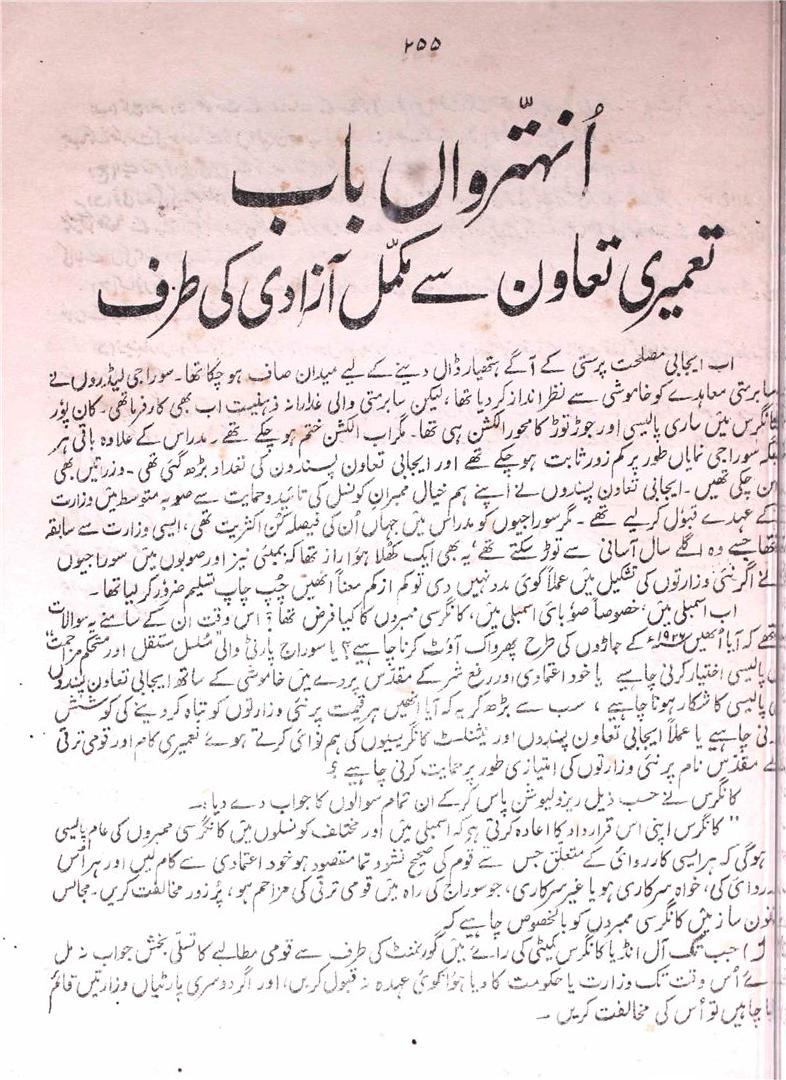 ۲۵۵
اُنہتّرواں باب
تعمیری تعاون سے مکمّل آزادی کی طرف
اب ایجابی مصلحت پرستی کے آگے ہتھیار ڈال دینے کے لیے میدان صاف ہو چکا تھا۔ سوراجی لیڈروں نے
سابرمتی معاہدے کو خاموشی سے نظر انداز کر دیا تھا، لیکن سابرمتی والی غدارانہ ذہنیت اب بھی کارفرما تھی۔ کان پور
کانگرس میں ساری پالیسی اور جوڑ توڑ کا محور الکشن ہی تھا۔ مگر اب الکشن ختم ہو چکے تھے۔ مدراس کے علاوہ باقی ہر
جگہ سوراجی نمایاں طور پر کم زور ثابت ہو چکے تھے اور ایجابی تعاون پسندوں کی تعداد بڑھ گئی تھی۔ وزارتیں بھی
بن چکی تھیں۔ ایجابی تعاون پسندوں نے اپنے ہم خیال ممبرانِ کونسل کی تائید و حمایت سے صوبہ متوسط میں وزارت
کے عہدے قبول کر لیے تھے۔ مگر سوراجیوں کو مدراس میں جہاں اُن کی فیصلہ کُن اکثریت تھی، ایسی وزارت سے سابقہ
تھا جسے وہ اگلے سال آسانی سے توڑ سکتے تھے، یہ بھی ایک کھُلا ہوا راز تھا کہ بمبئی نیز اور صوبوں میں سوراجیوں
نے اگر نئی وزارتوں کی تشکیل میں عملاً کوئی مدد نہیں دی تو کم از کم معناً انھیں چُپ چاپ تسلیم ضرور کر لیا تھا۔
اب اسمبلی میں، خصوصاً صوبائی اسمبلی میں، کانگرسی ممبروں کا کیا فرض تھا؟ اس وقت ان کے سامنے یہ سوالات
تھے کہ آیا اُنھیں ۱۹۲۶ء کے جماڑوں کی طرح پھر واک آؤٹ کرنا چاہیے؟ یا سوراج پارٹی والی "مسلسل مستقل اور مستحکم مزاحمت"
کی پالیسی اختیار کرنی چاہیے یا خود اعتمادی اور رفع شر کے مقدّس پردے میں خاموشی کے ساتھ ایجابی تعاون پسندوں
کی پالیسی کا شکار ہونا چاہیے، سب سے بڑھ کر یہ کہ آیا انھیں ہر قیمت پر نئی وزارتوں کو تباہ کر دینے کی کوشش
کرنی چاہیے یا عملاً ایجابی تعاون پسندوں اور نیشنلسٹ کانگریسیوں کی ہم نوائی کرتے ہوئے تعمیری کام اور قومی ترقی
کے مقدّس نام پر نئی وزارتوں کی امتیازی طور پر حمایت کرنی چاہیے؟
کانگرس نے حسب ذیل ریزولیوشن پاس کر کے ان تمام سوالوں کا جواب دے دیا:۔
"کانگرس اپنی اس قرارداد کا اعادہ کرتی ہے کہ اسمبلی میں اور مختلف کونسلوں میں کانگرسی ممبروں کی عام پالیسی
ہوگی کہ ہر ایسی کارروائی کے متعلق جس سے قوم کی صحیح نشوونما مقصود ہو خود اعتمادی سے کام لیں اور ہر اُس
کارروائی کی، خواہ سرکاری ہو یا غیر سرکاری، جو سوراج کی راہ میں قومی ترقی کی مزاحم ہو، پُر زور مخالفت کریں۔ مجالس
قانون ساز میں کانگرسی ممبروں کو بالخصوص چاہیے کہ
(۱) جب تک آل انڈیا کانگرس کمیٹی کی رائے میں گورنمنٹ کی طرف سے قومی مطالبے کا تسلّی بخش جواب نہ مل
جائے اُس وقت تک وزارت یا حکومت کا دیا ہوا کوئی عہدہ نہ قبول کریں، اور اگر دوسری پارٹیاں وزارتیں قائم
کرنا چاہیں تو اُس کی مخالفت کریں۔